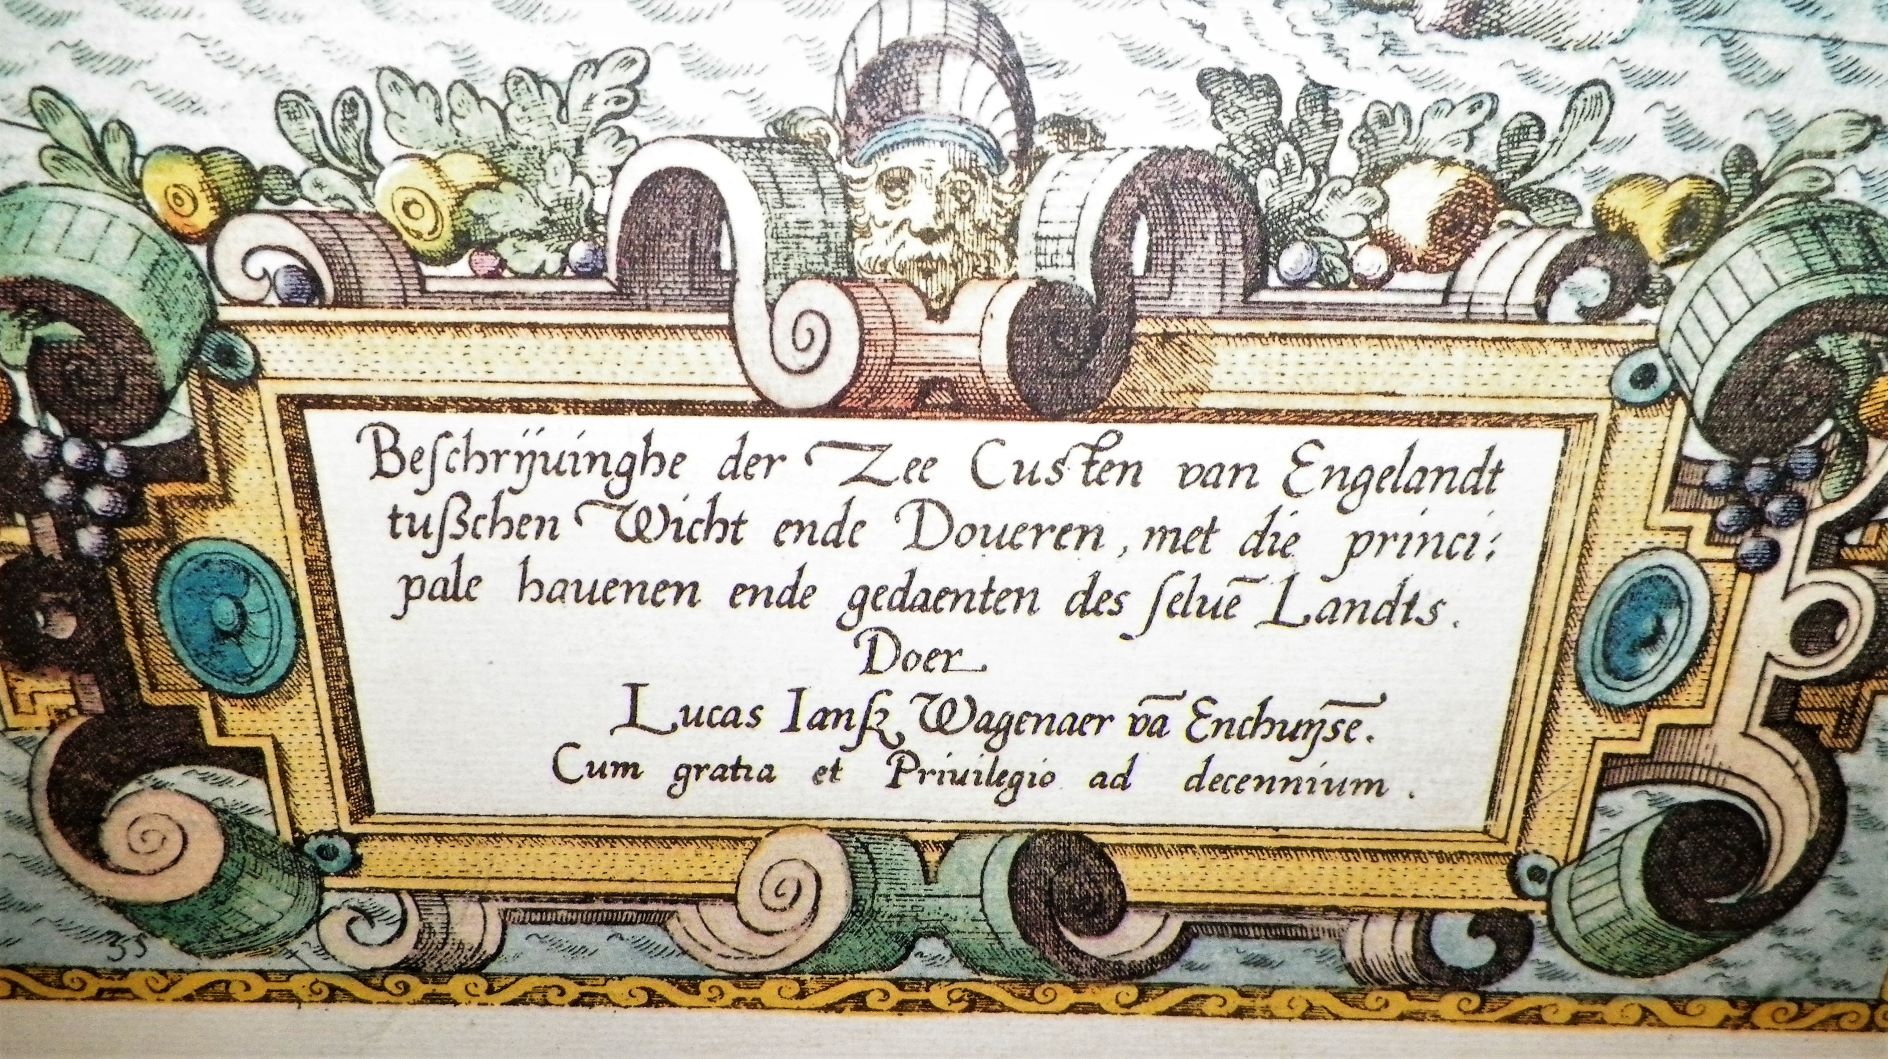 Beſchrijuinghe der Zee Cuſten van Engelandt
tuſſchen Wicht ende Doueren, met die princi:
pale hauenen ende gedaenten des ſeluē Landts.
Doer
Lucas Ianſz Wagenaer vā Enchuyſe.
Cum gratia et Priuilegio ad decennium.
35